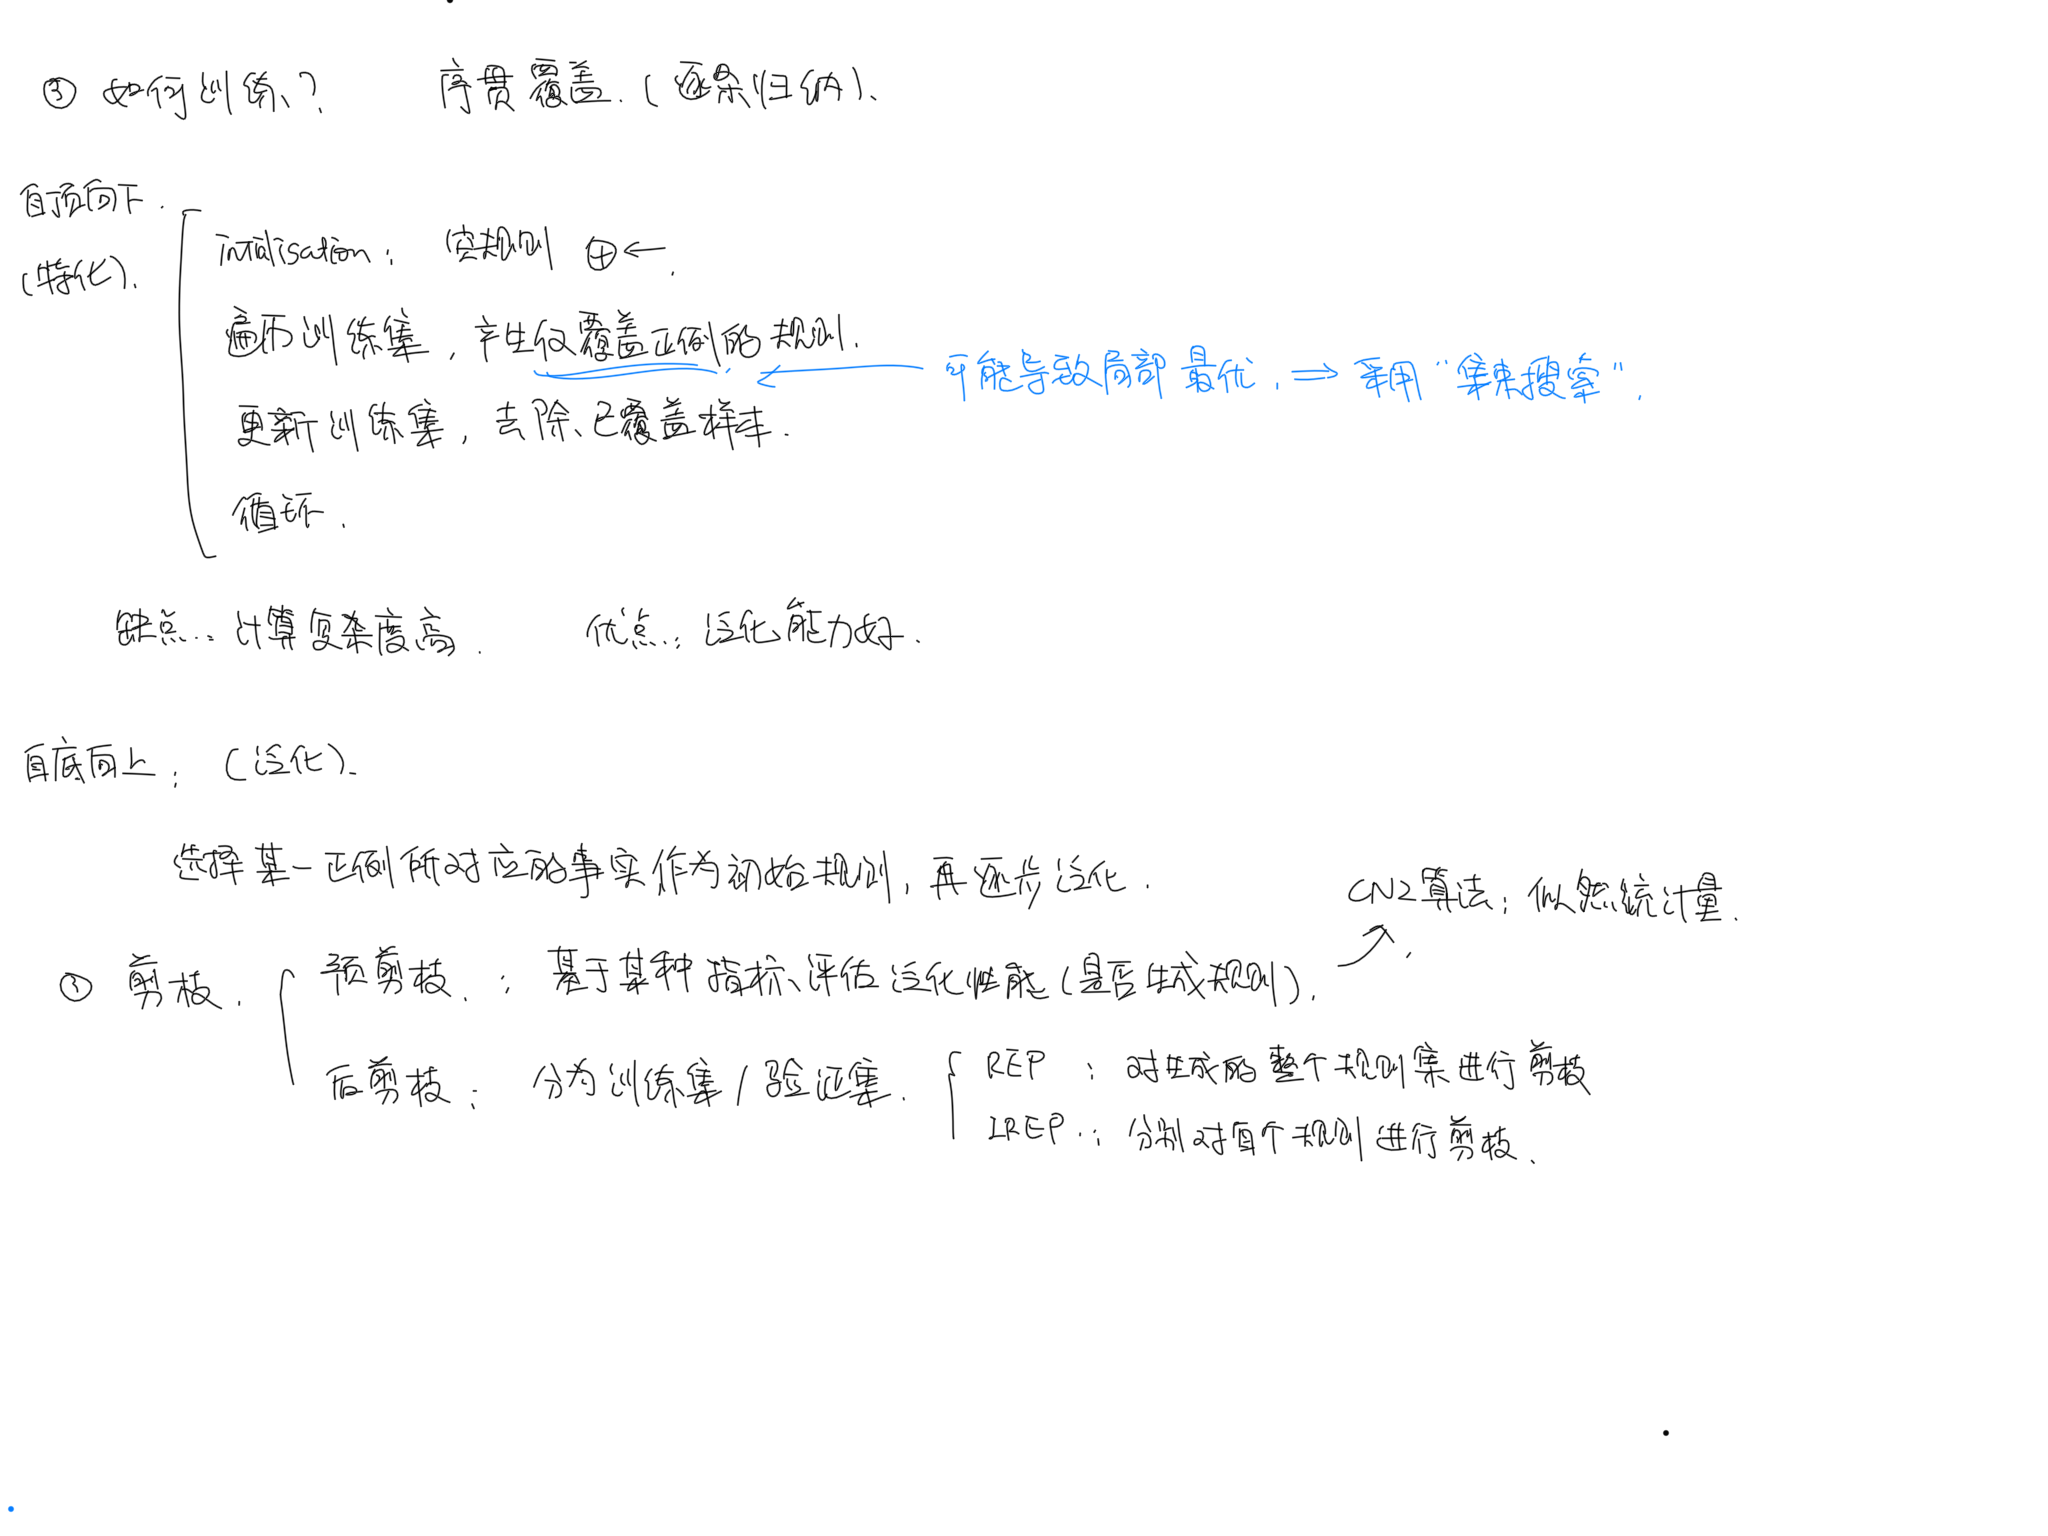 ③ 如何训练? 序贯覆盖.(逐条归纳).
自顶向下.
(特化).
intialisation: 空规则 ⊕←.
遍历训练集,产生仅覆盖正例的规则.
可能导致局部最优. ⇒ 采用“集束搜索”.
更新训练集,去除已覆盖样本.
循环.
缺点: 计算复杂度高. 优点: 泛化能力好.
自底向上: (泛化).
选择某一正例所对应的事实作为初始规则,再逐步泛化.
CN2算法: 似然统计量.
剪枝.
预剪枝.: 基于某种指标评估泛化性能(是否生成规则).
后剪枝: 分为训练集/验证集.
REP : 对生成的整个规则集进行剪枝
IREP.: 分别对每个规则进行剪枝.